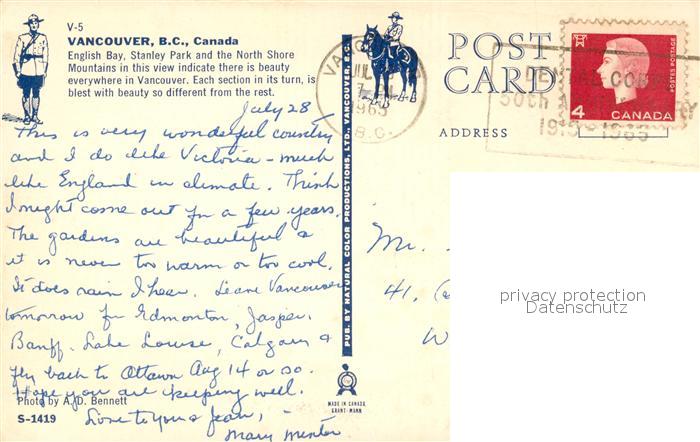 V-5
VANCOUVER, B.C., Canada
English Bay, Stanley Park and the North Shore
Mountains in this view indicate there is beauty
everywhere in Vancouver. Each section in its turn, is
blest with beauty so different from the rest.
July 28
This is very wonderful country
and I do like Victoria - much
like England in climate. Think
I might come out for a few years.
The gardens are beautiful &
it is never too warm or too cool.
It does rain I hear. Leave Vancouver
tomorrow for Edmonton, Jasper,
Banff, Lake Louise, Calgary &
fly back to Ottawa Aug 14 or so.
Hope you are keeping well.
Photo by A. D. Bennett
S-1419
Love to you & Jean,
Mary
PUB. BY NATURAL COLOR PRODUCTIONS, LTD., VANCOUVER, B.C.
MADE IN CANADA
GRANT-MANN
POST
CARD
ADDRESS
JUL
1965
B.C.
DENTAL
50th
4
CANADA
POSTES POSTAGE
Mr.
41,
W
privacy protection
Datenschutz